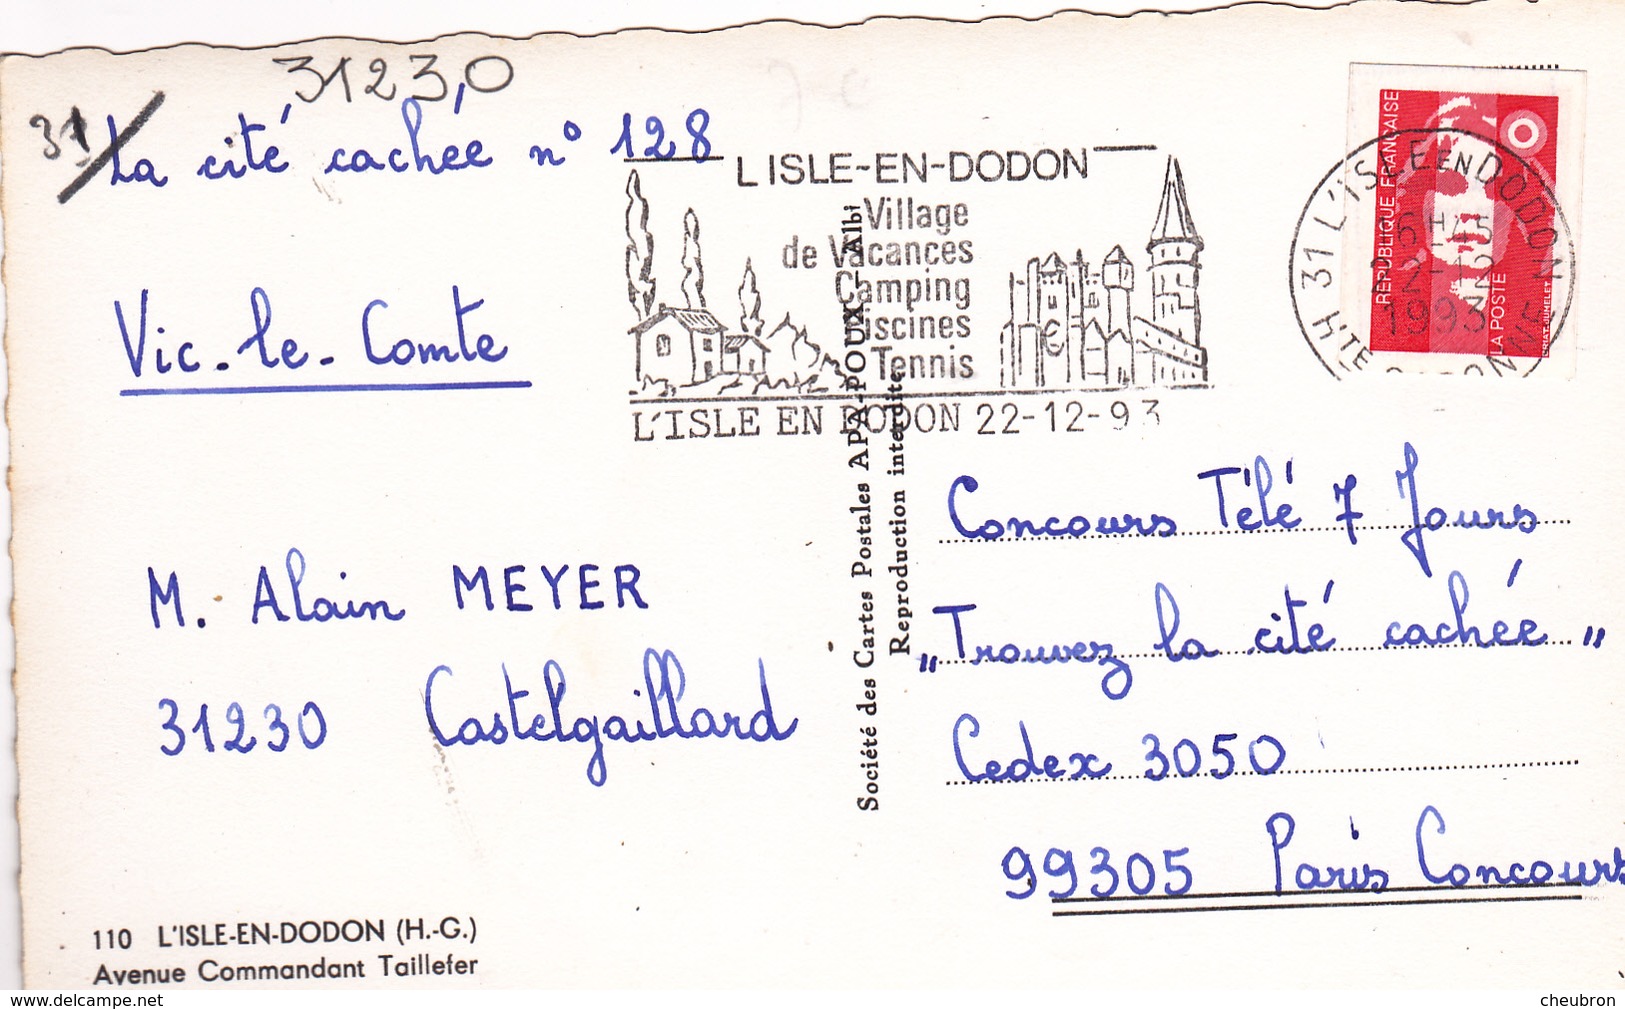 31230
31
La cité cachée n° 128
Vic-le-Comte
M. Alain MEYER
31230 Castelgaillard
110 L'ISLE-EN-DODON (H.-G.)
Avenue Commandant Taillefer
L'ISLE-EN-DODON
Village
de Vacances
Camping
Piscines
Tennis
L'ISLE EN DODON 22-12-93
Société des Cartes Postales APA-POUX - Albi
Reproduction interdite
31 L'ISLE EN DODON
H'TE GARONNE
16H45
22-12
1993
REPUBLIQUE FRANÇAISE
LA POSTE
Concours Télé 7 Jours
"Trouvez la cité cachée"
Cedex 3050
99305 Paris Concours
www.delcampe.net
cheubron